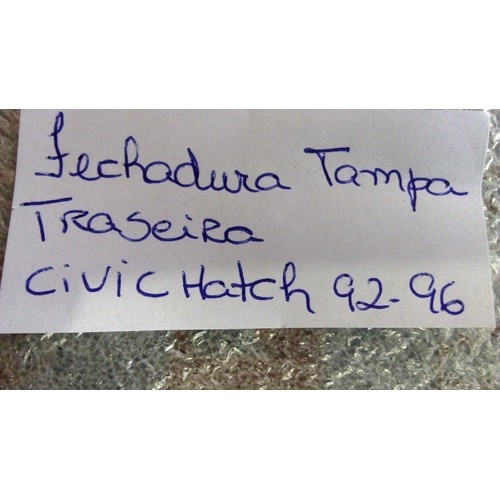 Fechadura Tampa
TRaseiRa
CiViC Hatch 92-96